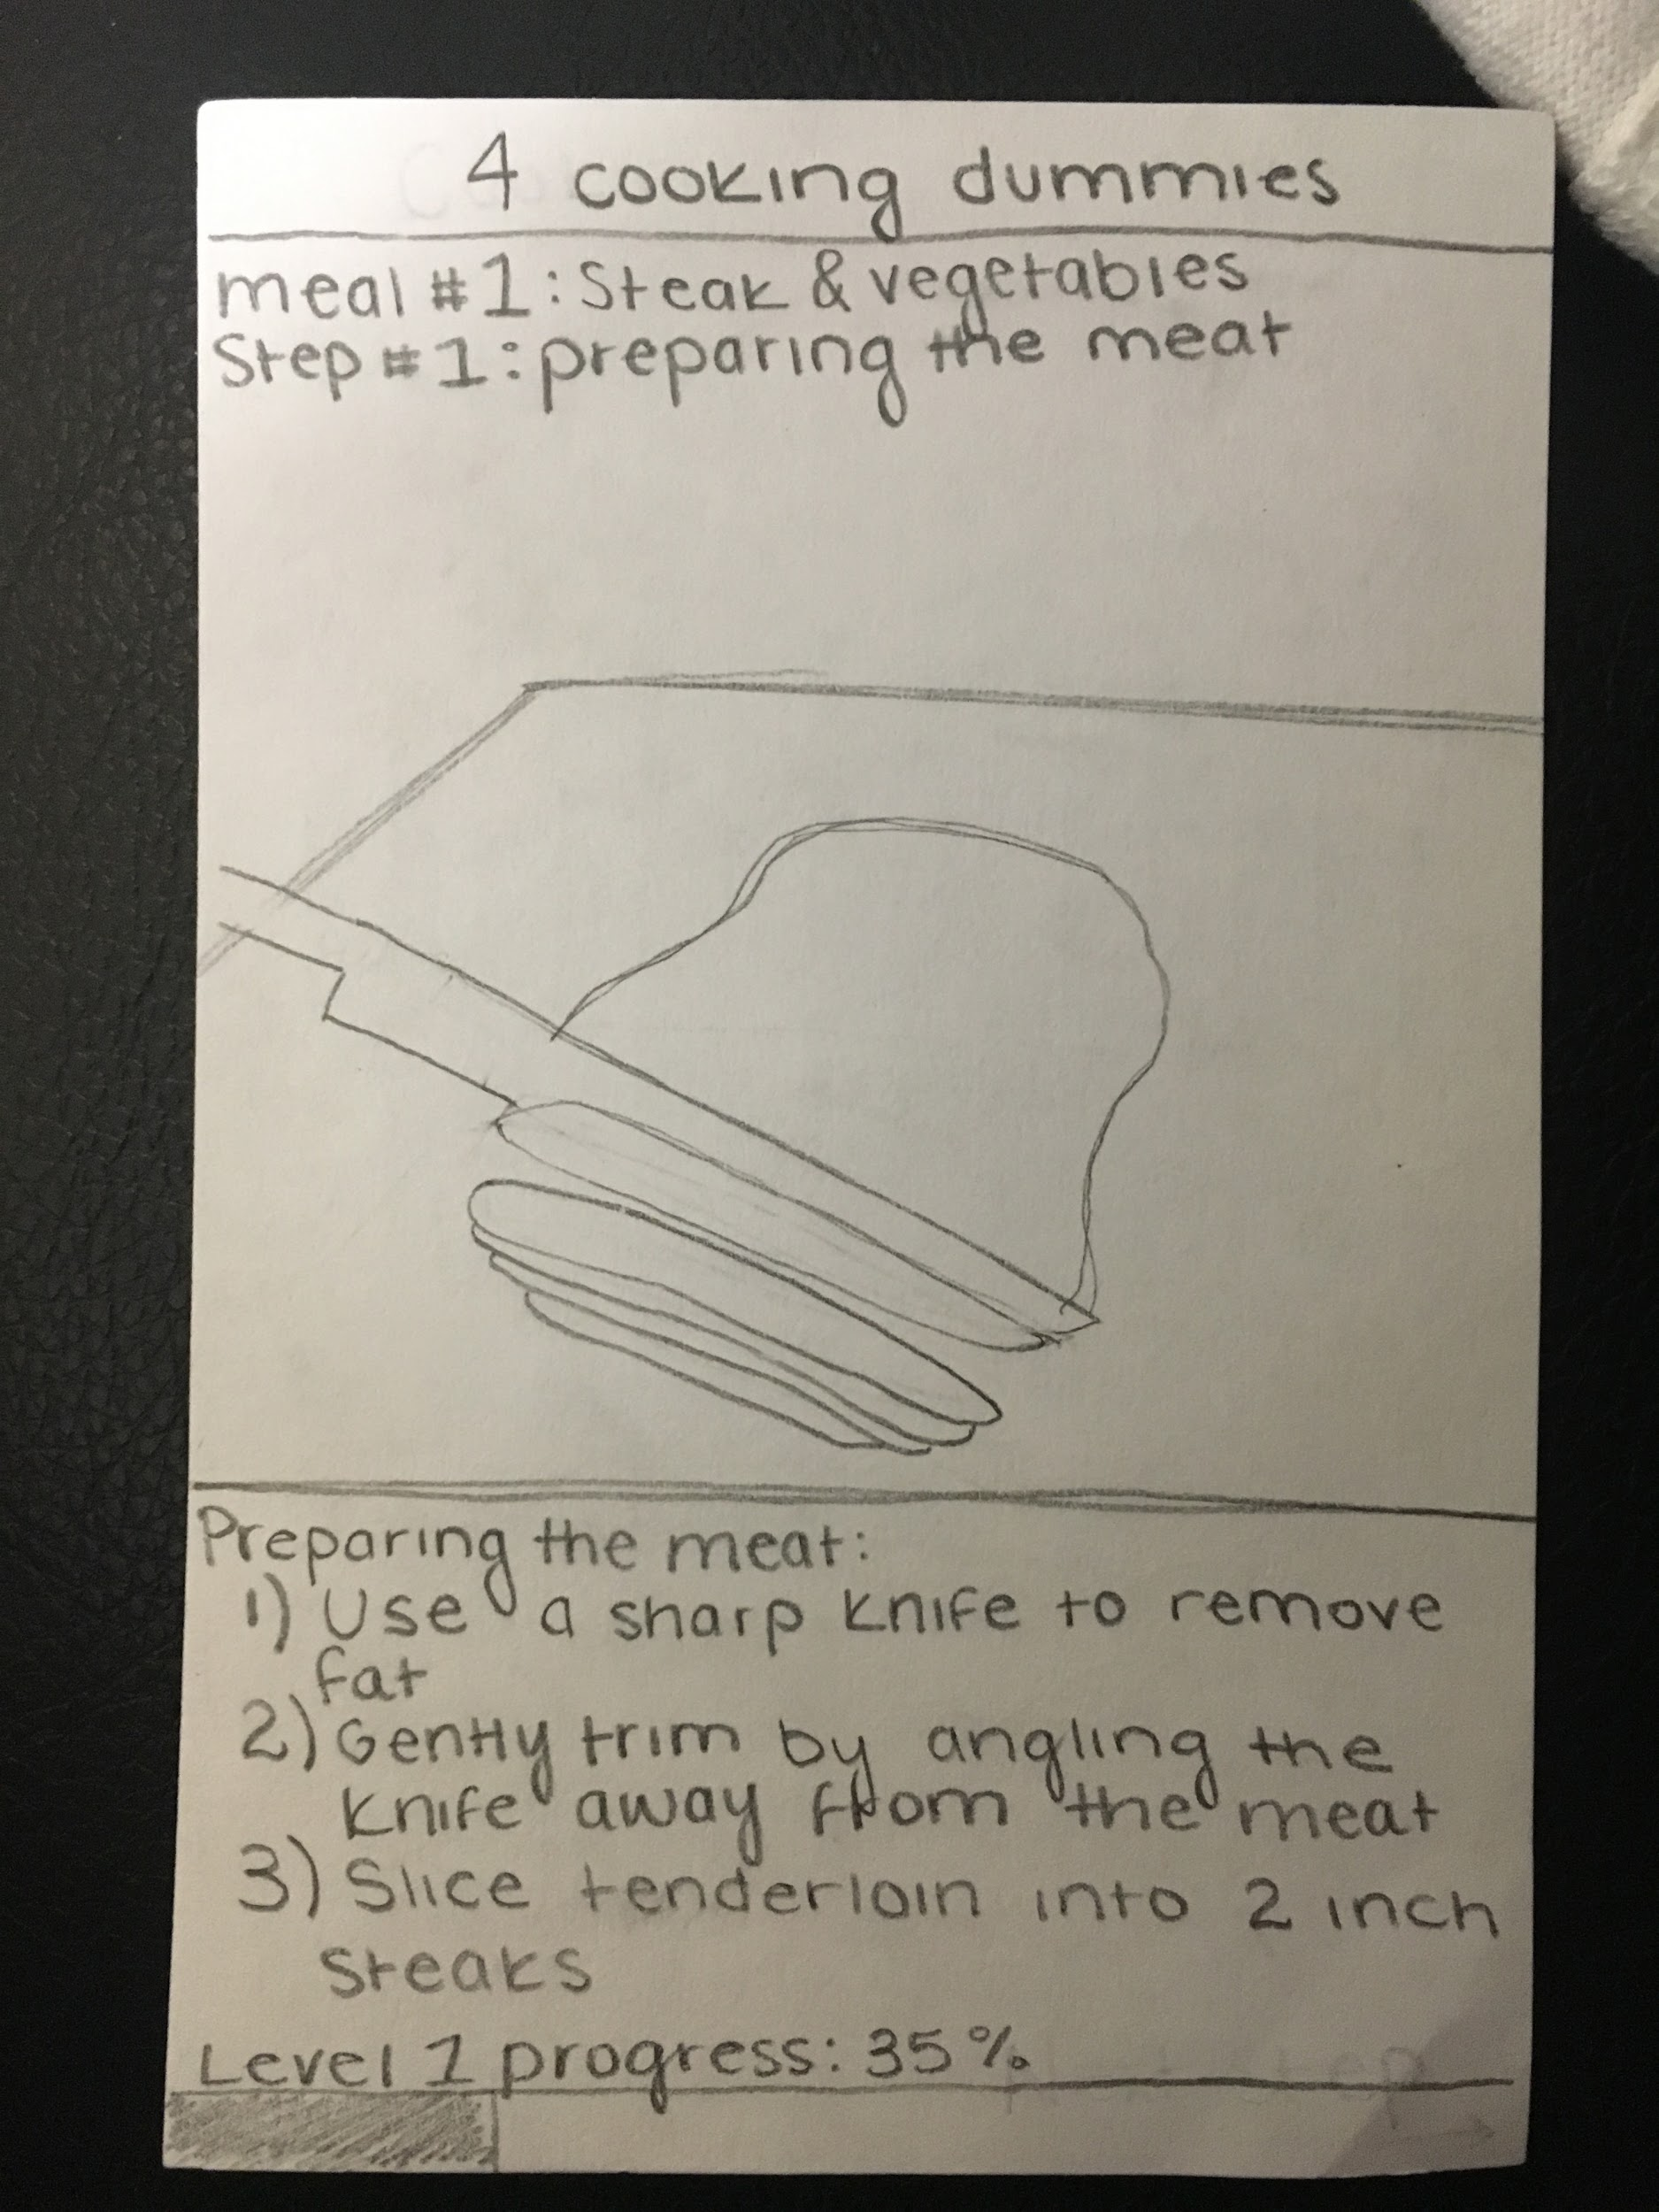 4 cooking dummies
meal #1: Steak & vegetables
Step #1: preparing the meat
Preparing the meat:
1) Use a sharp knife to remove
fat
2) Gently trim by angling the
knife away from the meat
3) Slice tenderloin into 2 inch
steaks
Level 1 progress: 35%